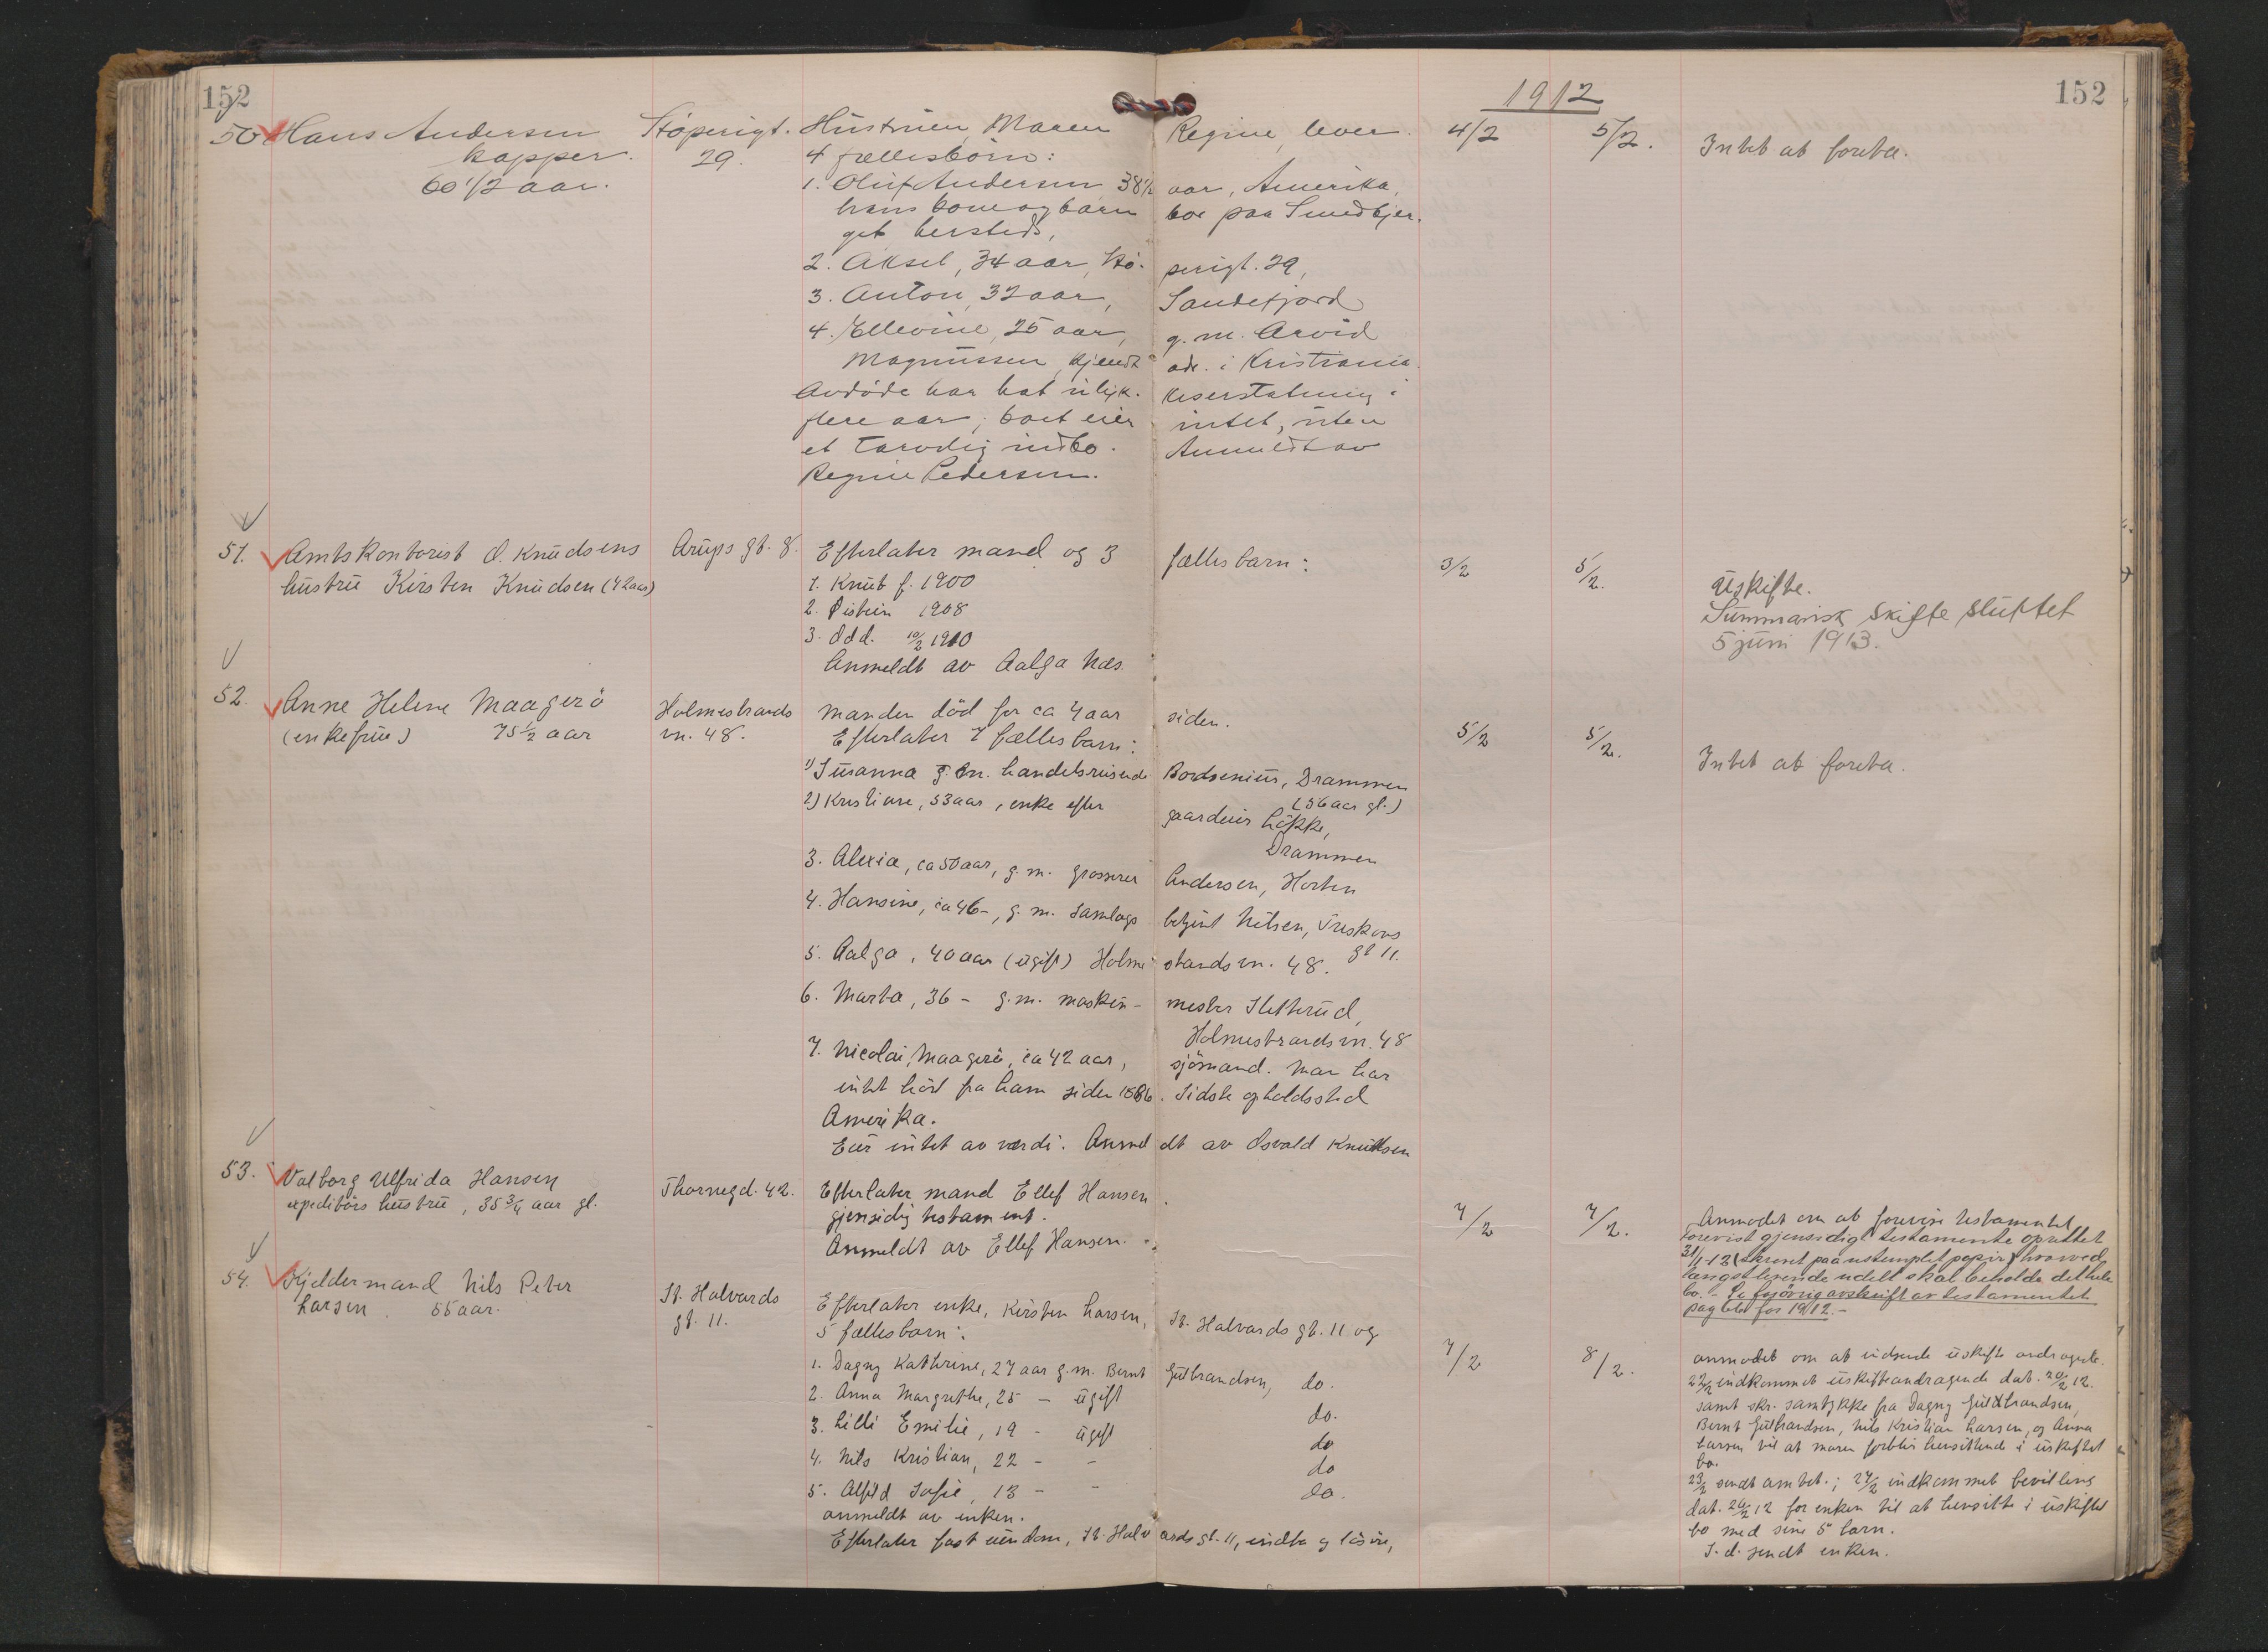 152
1912
152
50 Hans Andersen Støperigt. Hustruen Maren Regine lever. 4/2 5/2. Intet at foreta.
kopper. 29. 4 fællesbörn:
60 1/2 aar. 1. Oluf Andersen 38 1/2 aar, Amerika,
hans kone og barn bor paa Smedbjer-
get hersteds,
2. Aksel, 34 aar, Stö- perigt. 29,
3. Anton, 32 aar, Sandefjord
4. Ellevine, 25 aar, g. m. Arvid
Magnussen, ukjendt adr. i Kristiania.
Avdöde har hat ulyk- keserstatning i
flere aar; boet eier intet, uten
et tarvelig indbo. Anmeldt av
Regine Pedersen.
51. Amtskontorist O. Knudsens Arups gt. 8. Efterlater mand og 3 fælles barn: 3/2 5/2. Uskifte.
hustru Kirsten Knudsen (42 aar) 1. Knut f. 1900 Summarisk skifte sluttet
2. Øistein 1908 5 juni 1913.
3. Odd. 10/2 1910
Anmeldt av Aalga Næs.
52. Anne Helene Maagerö Holmestrands manden död for ca 4 aar siden. 5/2 5/2. Intet at foreta.
(enkefrue) 75 1/2 aar vn. 48. Efterlater 7 fælles barn:
1) Susanna g. m. handelsreisende Bordsenius, Drammen
(56 aar gl.)
2) Kristiane, 53 aar, enke efter gaardeier Løkke,
Drammen
3. Alexia, ca 50 aar, g. m. grosserer Andersen, Horten
4. Hansine, ca 46 -, g. m. samlags betjent Nilsen, Treskows
gt 11.
5. Aalga, 40 aar (ugift) Holme- strands vn. 48.
6. Marta, 36 - g. m. maskin- mester Sletterud,
Holmestrands vn. 48
7. Nicolai Maagerö, ca 42 aar, sjömand. Man har
intet hört fra ham siden 1886. Sidste opholdssted
Amerika.
Eier intet av værdi. Anmel dt av Osvald Knudsen
53. Valborg Ulfrida Hansen Thornegd. 42. Efterlater mand Ellef Hansen. 7/2 7/2. Anmodet om at forevise testamentet
expeditörs hustru, 35 3/4 aar gl. gjensidig testament. Forevist gjensidigt testamente oprettet
Anmeldt av Ellef Hansen. 31/1-12 (skrevet paa ustemplet papir) hvorved
længstlevende udelt skal beholde det hele
bo. - avskrift av testamentet
for 1912.-
54. Kjeldermand Nils Peter St. Halvards Efterlater enke, Kirsten Larsen, St. Halvards gt. 11 og 7/2 8/2. anmodet om at indsende uskifte andragende.
Larsen 55 aar. gt. 11. 5 fælles barn:
1. Dagny Kathrine, 27 aar g. m. Bernt Gulbrandsen, do. 22/2 indkommet uskifteandragende dat. 20/2 12.
2. Anna Margrethe, 25 - ugift do. samt skr. samtykke fra Dagny Gulbrandsen,
3. Lilli Emilie, 19 - ugift do Bernt Gulbrandsen, Nils Kristian Larsen, og Anna
4. Nils Kristian, 22 - - do Larsen til at moren forblir hensittende i uskiftet
5. Alfild Sofie, 13 - - do. bo.
anmeldt av enken. 23/2 sendt amtet.; 27/2 indkommet bevilling
Efterlater fast eiendom, St. Halv ards gt. 11, indbo og lösöre, dat. 26/2 12 for enken til at hensitte i uskiftet
bo med sine 5 barn.
S. d. sendt enken.